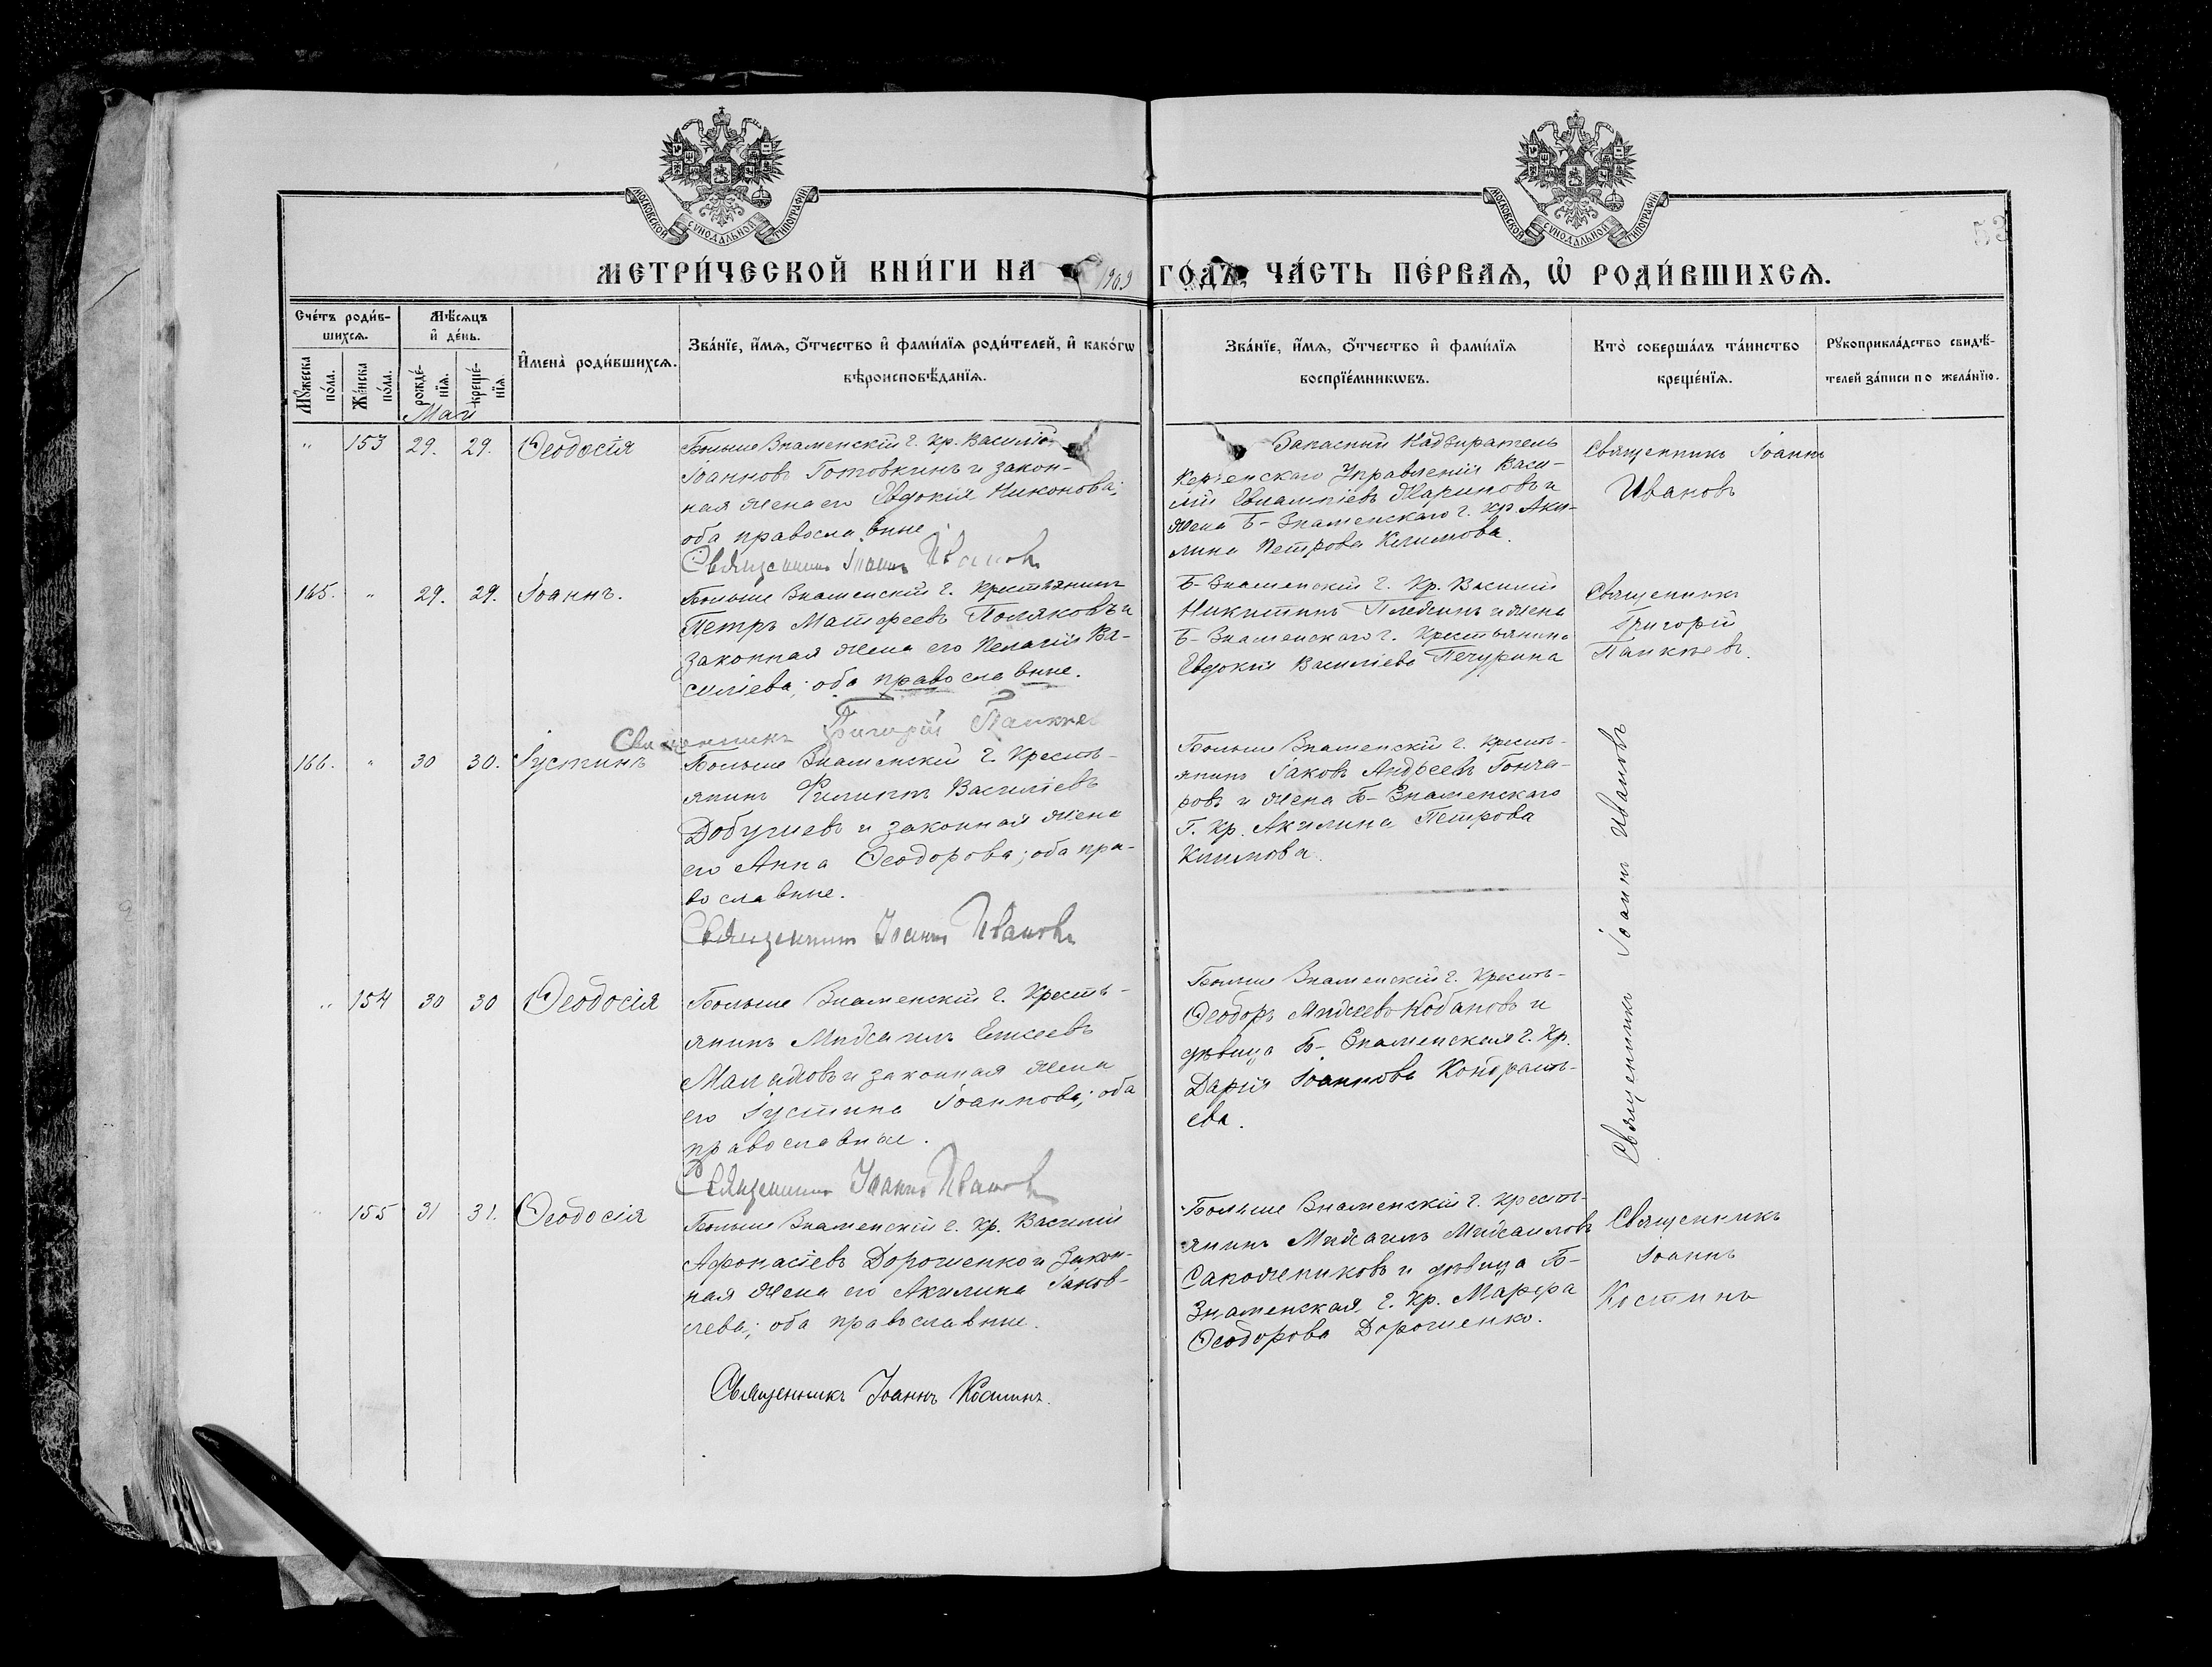 МОСКОВСКОЙ СѴНОДАЛЬНОЙ ТИПОГРАФІИ
МОСКОВСКОЙ СѴНОДАЛЬНОЙ ТИПОГРАФІИ
53
МЕТРИ́ЧЕСКОЙ КНИ́ГИ НА 1909 ГО́ДЪ, ЧА́СТЬ ПЕ́РВАѦ, Ѡ҆ РОДИ́ВШИХСѦ.
Сче́тъ роди́в-
шихсѧ.
Мꙋ́жеска по́ла.
Же́нска по́ла.
Мѣ́сѧцъ
и҆ де́нь.
рожде́-
нїѧ.
креще́-
нїѧ
И҆мена̀ роди́вшихсѧ.
Зва́нїе, и҆́мѧ, ѻ҆́тчество и҆ фами́лїѧ роди́телей, и҆ како́гѡ
вѣроисповѣ́данїѧ.
Зва́нїе, и҆́мѧ, ѻ҆́тчество и҆ фами́лїѧ
воспрїе́мникѡвъ.
Кто̀ соверша́лъ та́инство
креще́нїѧ.
Рꙋкоприкла́дство свидѣ́-
телей за́писи по жела́нїю.
Май
" 153 29. 29. Ѳеодосія
Больше Знаменскій г. кр. Василій
Іоанновъ Готовкинъ и закон-
ная жена его Евдокія Никонова;
оба православные
Священникъ Іоаннъ Ивановъ
Запасный Надзиратель
Управленія Васи-
лій Евлампіевъ и
жена Б-Знаменскаго г. кр Аки-
лина Петрова Климова.
Священникъ Іоаннъ
Ивановъ
165. " 29. 29. Іоаннъ.
Больше Знаменскій г. крестьянинъ
Петръ Матфеевъ Поляковъ и
законная жена его Пелагія Ва-
силіева; оба православные.
Священникъ Григорій
Б-Знаменскій г. Кр. Василій
Никитинъ и жена
Б-Знаменскаго г. крестьянина
Евдокія Василіева Печурина
Священникъ
Григорій
166. " 30 30. Іустинъ
Больше Знаменскій г. Кресть-
янинъ Филиппъ Василіевъ
и законная жена
его Анна Ѳеодорова; оба пра-
вославные.
Священникъ Іоаннъ Ивановъ
Больше Знаменскій г. кресть-
янинъ Іаковъ Андреевъ Гонча-
ровъ и жена Б-Знаменскаго
г. кр. Акилина Петрова
Климова.
Священникъ Іоаннъ Ивановъ
" 154 30 30 Ѳеодосія
Больше Знаменскій г. Кресть-
янинъ Михаилъ Елисеевъ
и законная жена
его Іустина Іоаннова; оба
православные.
Священникъ Іоаннъ Ивановъ
Больше Знаменскій г. Кресть-
Ѳеодоръ и
дѣвица Б-Знаменская г. Кр.
Дарія Іоаннова Кондрать-
ева.
" 155 31 31. Ѳеодосія
Больше Знаменскій г. кр. Василій
Афонасіевъ Дорошенко и закон-
ная жена его Акилина Іаков-
лева; оба православные.
Священникъ Іоаннъ Костинъ.
Больше Знаменскій г. кресть-
янинъ Михаилъ Михаиловъ
Сапожниковъ и дѣвица Б-
Знаменская г. кр. Марфа
Ѳеодорова Дорошенко.
Священникъ
Іоаннъ
Костинъ